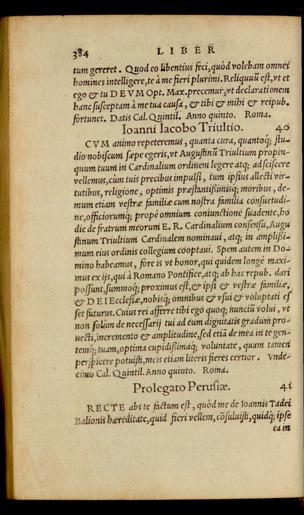 384 LIBER
tum gereret. Quod eo libentius feci, quòd volebam omnes
homines intelligere, te à me fieri plurimi. Reliquuũ est, vt et
ego & tu DEVM Opt. Max. precemur, vt declarationem
hanc susceptam à me tua causa, & tibi & mihi & reipub.
fortunet. Datis Cal. Quintil. Anno quinto. Roma.
Ioanni Iacobo Triultio. 40
CVM animo repeteremus, quanta cura, quantoq́; stu-
dio nobiscum sæpe egeris, vt Augustinũ Triultium propin-
quum tuum in Cardinalium ordinem legere atq; adsciscere
vellemus, cùm tuis precibus impulsi, tum ipsius allecti vir-
tutibus, religione, optimis præstantißimisq; moribus, de-
mum etiam vestræ familiæ cum nostra familia consuetudi-
ne, officiorumq; prope omnium coniunctione suadente, ho
die de fratrum meorum E. R. Cardinalium consensu, Augu
stinum Triultium Cardinalem nominaui, atq; in amplißi-
mum eius ordinis collegium cooptaui. Spem autem in Do-
mino habeamus, fore is vt honor, qui quidem longè maxi-
mus ex ijs, qui à Romano Pontifice, atq; ab hac repub. dari
possunt, summoq; proximus est, & ipsi & vestræ familiæ,
& DEI Ecclesiæ, nobisq; omnibus & vsui & voluptati es
set futurus. Cuius rei afferre tibi ego quoq; nunciũ volui, vt
non solùm de necessarij tui ad eum dignitatis gradum pro-
uecti, incremento & amplitudine, sed etiã de mea in te gen-
temq; tuam, optima cupidißimaq; voluntate, quam tamen
perspicere potuisti, meis etiam literis fieres certior. Vnde-
cimo Cal. Quintil. Anno quinto. Roma.
Prolegato Perusiæ. 41
RECTE abs te factum est, quòd me de Ioannis Tadei
Balionis hæreditate, quid fieri vellem, cõsuluisti, quidq́; ipse
ea in